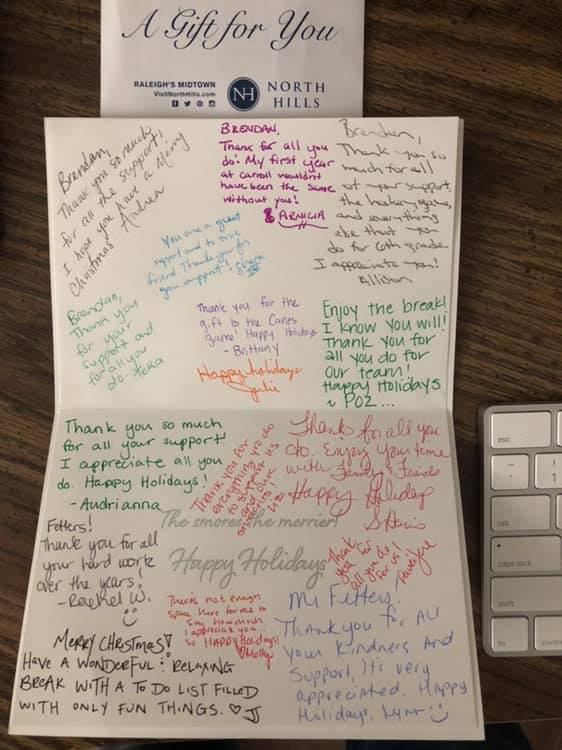 A Gift for You
RALEIGH'S MIDTOWN
VisitNorthHills.com
NH
NORTH
HILLS
Brendan,
Thank you so much
for all the support,
I hope you have a Merry
Christmas Andrea
BRENDAN,
Thank for all you
do! My first year
at carroll wouldn't
have been the same
without you!
ARNICIA
Brendan,
Thank you so
much for all
of your support,
the hockey game,
and everything
else that you
do for 6th grade.
I appreciate you!
Allison
You are a great
support and to true
friend. Thank you for
your support!
Brendan,
Thank you
for your
support and
for all you
do.
Thank you for the
gift to the Canes
game! Happy Holidays
- Brittany
Happy holidays
Julie
Enjoy the break!
I know you will!
Thank you for
all you do for
our team!
Happy Holidays
~ POZ...
Thank you so much
for all your support!
I appreciate all you
do. Happy Holidays!
- Audrianna
Thank you for
everything you do
to support us
and
Thanks for all you
do. Enjoy your time
with Family & Friends
Happy Holiday
S Harris
The s'mores the merrier!
Happy Holidays
Thank
you for
all you do
for us!
Fetters!
Thank you for all
your hard work
over the years!
- Rachel W.
There's not enough
space here for me to
say how much
I appreciate you
so HAPPY Holidays!
Molly
Mr Fetters,
Thank you for All
your Kindness And
Support, It's very
appreciated. Happy
Holidays, Lynn
MERRY CHRISTMAS!
HAVE A WONDERFUL & RELAXING
BREAK WITH A TO DO LIST FILLED
WITH ONLY FUN THINGS. JJ
esc
~
!
1
tab
caps lock
shift
fn
control